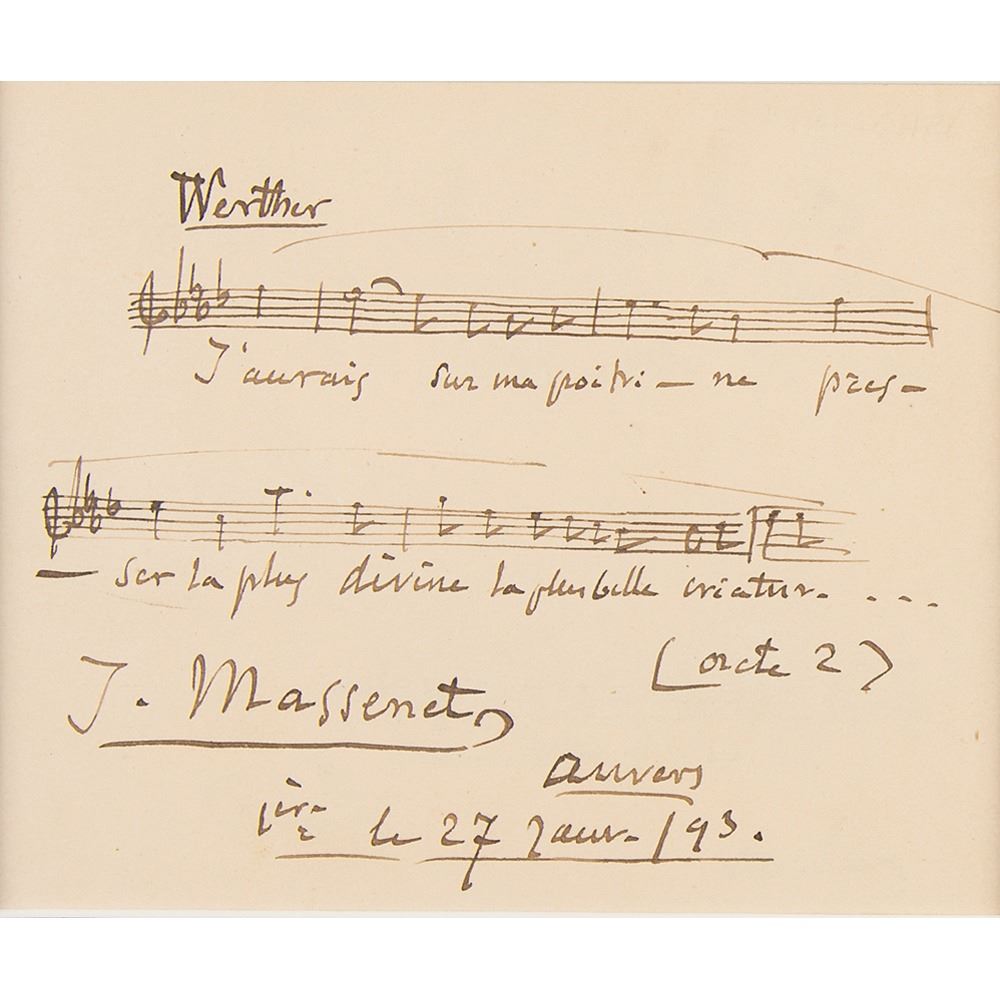 Werther
J'aurais sur ma poitri – ne pres –
– ser la plus divine la plus belle créatur. . . .
(acte 2)
J. Massenet
Anvers
1ère le 27 Janv. /93.